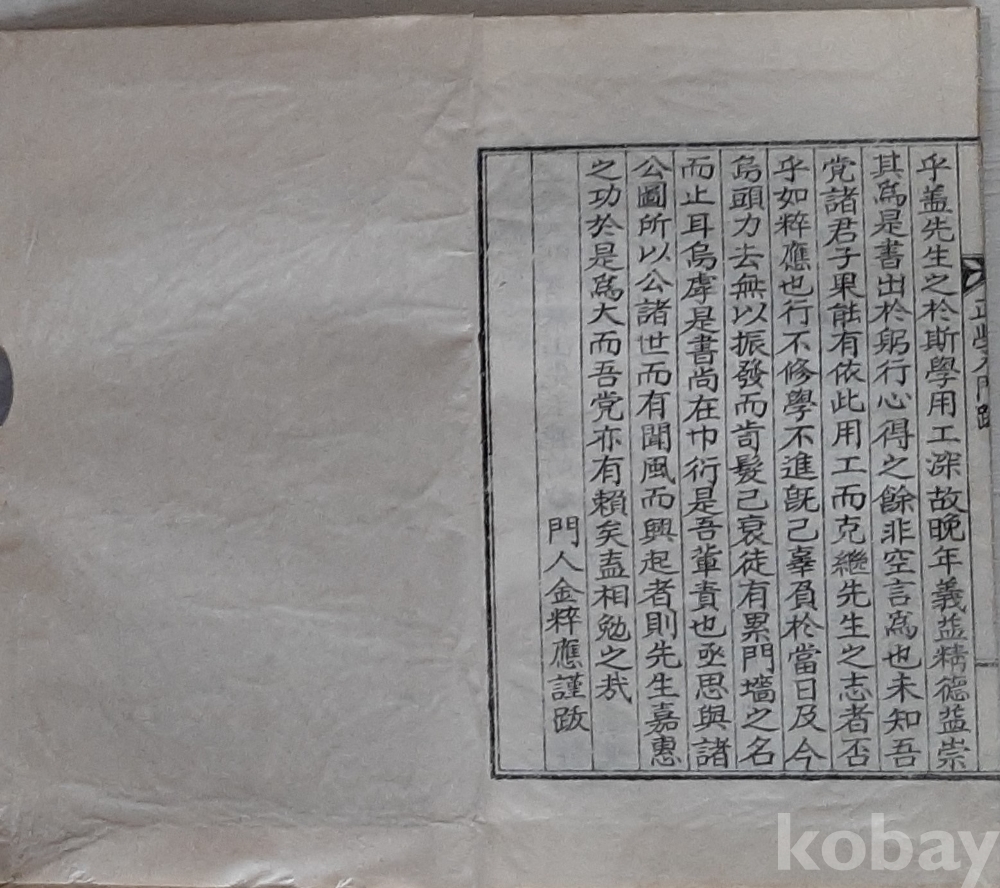 正學入門跋
乎盖先生之於斯學用工深故晚年義益精德益崇
其爲是書出於躬行心得之餘非空言爲也未知吾
党諸君子果能有依此用工而克繼先生之志者否
乎如粹應也行不修學不進旣已辜負於當日及今
烏頭力去無以振發而齒髮已衰徒有累門墻之名
而止耳烏虖是書尚在巾衍是吾輩責也亟思與諸
公圖所以公諸世而有聞風而興起者則先生嘉惠
之功於是爲大而吾党亦有賴矣盍相勉之㦲
門人金粹應謹跋
kobay